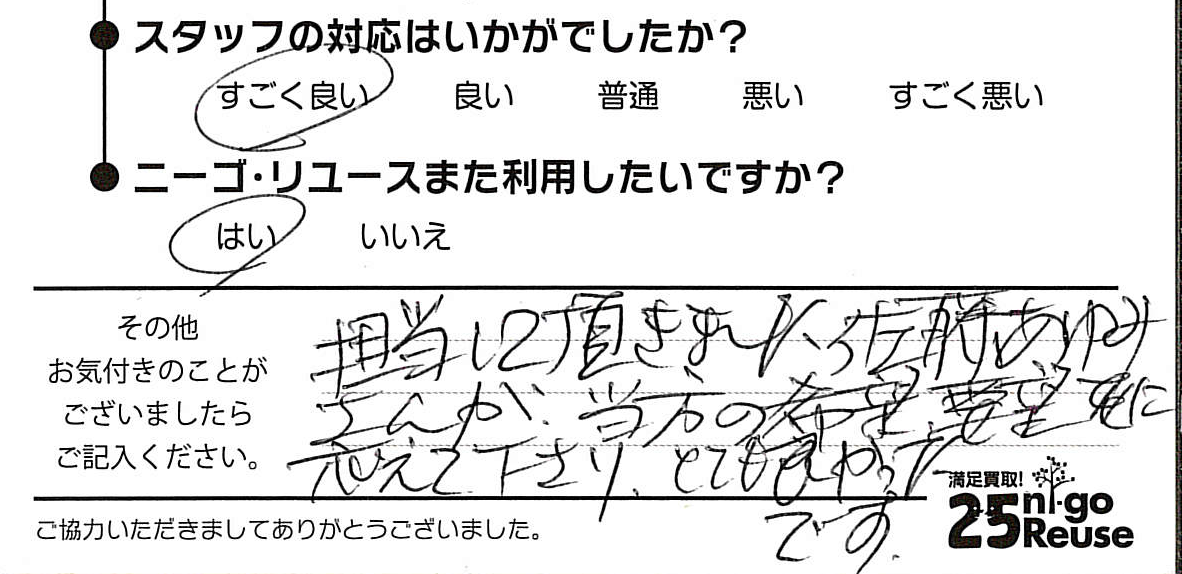 スタッフの対応はいかがでしたか?
すごく良い 良い 普通 悪い すごく悪い
ニーゴ・リユースまた利用したいですか?
はい いいえ
その他
お気付きのことが
ございましたら
ご記入ください。
担当して頂きました佐藤あゆみ
さんが、当方の希望、要望 に
応えて下さり、とても良かった
です。
ご協力いただきましてありがとうございました。
満足買取!
25 ni-go
Reuse